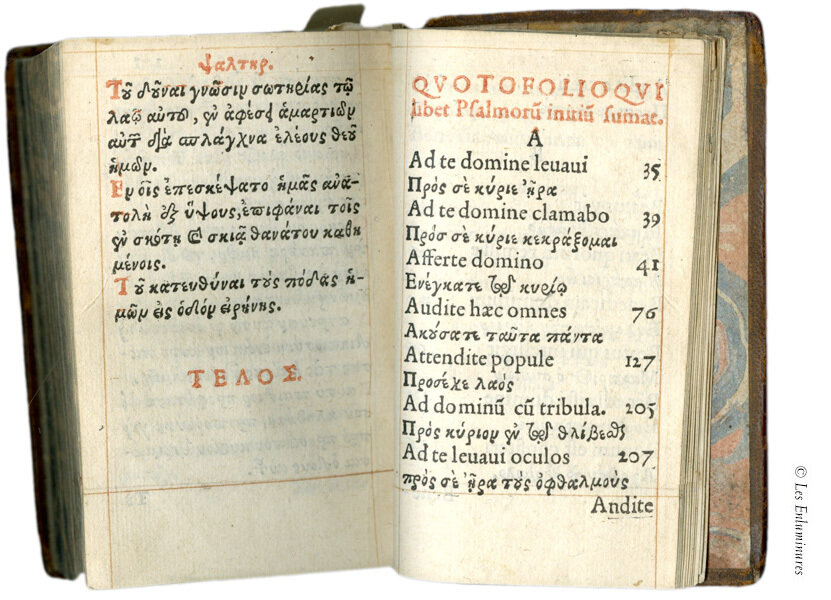 ψαλτηρ.
Τοῦ δοῦναι γνῶσιν σωτηρίας τῷ
λαῷ αὐτοῦ, ἐν ἀφέσει ἁμαρτιῶν
αὐτῶν διὰ σπλάγχνα ἐλέους θεοῦ
ἡμῶν.
Ἐν οἷς ἐπεσκέψατο ἡμᾶς ἀνα-
τολὴ ἐξ ὕψους, ἐπιφάναι τοῖς
ἐν σκότει καὶ σκιᾷ θανάτου καθη
μένοις.
Τοῦ κατευθῦναι τοὺς πόδας ἡ-
μῶν εἰς ὁδὸν εἰρήνης.
ΤΕΛΟΣ.
QVOTO FOLIO QVI
libet Psalmorũ initiũ sumat.
A
Ad te domine leuaui 35
Πρὸς σὲ κύριε ἦρα
Ad te domine clamabo 39
Πρὸσ σὲ κύριε κεκράξομαι
Afferte domino 41
Ενέγκατε τῷ κυρίῳ
Audite hæc omnes 76
Ακούσατε ταῦτα πάντα
Attendite popule 127
Προσέχε λαὸς
Ad dominũ cũ tribula. 205
Πρὸς κύριον ἐν τῷ θλίβεσθαι
Ad te leuaui oculos 207
πρὸς σὲ ἦρα τοὺς ὀφθαλμοὺς
Andite
© Les Enluminures